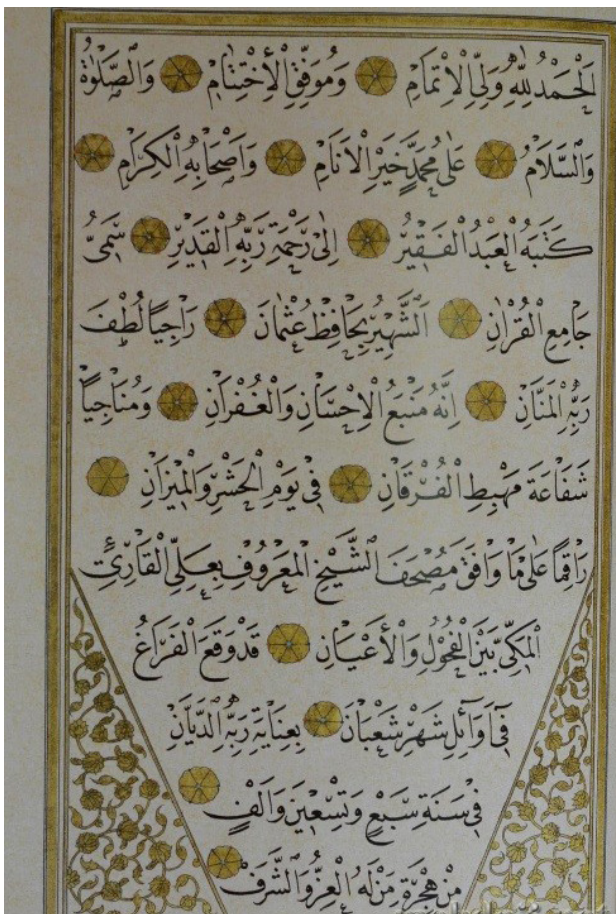 اَلْحَمْدُ لِلّٰهِ وَلِيِّ الْاِتْمَامِ وَمُوَفِّقِ الْاِخْتِتَامِ وَالصَّلٰوةُ
وَالسَّلَامُ عَلٰى مُحَمَّدٍ خَيْرِ الْاَنَامِ وَاَصْحَابِهِ الْكِرَامِ
كَتَبَهُ الْعَبْدُ الْفَقِيرُ اِلٰى رَحْمَةِ رَبِّهِ الْقَدِيرِ سَمِيُّ
جَامِعِ الْقُرْاٰنِ اَلشَّهِيرُ بِحَافِظِ عُثْمَانَ رَاجِيًا لُطْفَ
رَبِّهِ الْمَنَّانِ اِنَّهُ مَنْبَعُ الْاِحْسَانِ وَالْغُفْرَانِ وَمُنَاجِيًا
شَفَاعَةَ مَهْبِطِ الْفُرْقَانِ فِي يَوْمِ الْحَشْرِ وَالْمِيزَانِ
رَاقِمًا عَلٰى مَا وَافَقَ مُصْحَفَ الشَّيْخِ الْمَعْرُوفِ بِعَلِيِّ الْقَارِئِ
الْمَكِّيِّ بَيْنَ الْفُحُولِ وَالْاَعْيَانِ قَدْ وَقَعَ الْفَرَاغُ
فِي اَوَائِلِ شَهْرِ شَعْبَانَ بِعِنَايَةِ رَبِّهِ الدَّيَّانِ
فِي سَنَةِ سَبْعٍ وَتِسْعِينَ وَاَلْفٍ
مِنْ هِجْرَةِ مَنْ لَهُ الْعِزُّ وَالشَّرَفُ